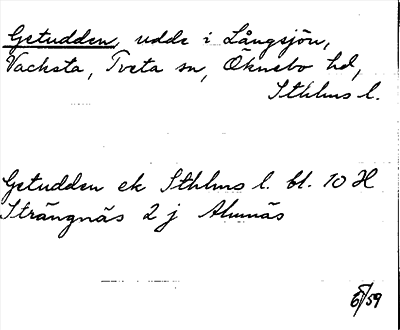 Getudden, udde i Långsjön,
Vacksta, Tveta sn, Öknebo hd,
Sthlms l.
Getudden ek Sthlms l. bl. 10 H
Strängnäs 2 j Alunäs
/59